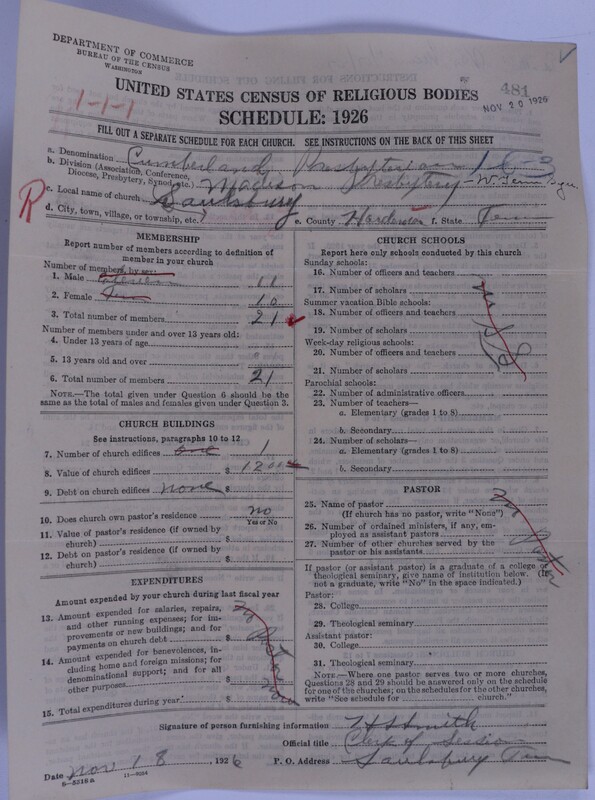 DEPARTMENT OF COMMERCE
BUREAU OF THE CENSUS
WASHINGTON
481
NOV 20 1926
1-1-1
UNITED STATES CENSUS OF RELIGIOUS BODIES
SCHEDULE: 1926
FILL OUT A SEPARATE SCHEDULE FOR EACH CHURCH. SEE INSTRUCTIONS ON THE BACK OF THIS SHEET
a. Denomination Cumberland Presbyterian 15-3
b. Division (Association, Conference, Diocese, Presbytery, Synod, etc.) Madison Presbytery - W. Tenn
R
c. Local name of church Saulsbury
d. City, town, village, or township, etc. ? e. County Hardeman f. State Tenn
MEMBERSHIP
Report number of members according to definition of
member in your church
Number of members, by sex:
1. Male 11
2. Female 10
3. Total number of members 21
Number of members under and over 13 years old:
4. Under 13 years of age
5. 13 years old and over
6. Total number of members 21
NOTE.—The total given under Question 6 should be the
same as the total of males and females given under Question 3.
CHURCH BUILDINGS
See instructions, paragraphs 10 to 12
7. Number of church edifices one 1
8. Value of church edifices $ 1200
9. Debt on church edifices none $
10. Does church own pastor's residence no
Yes or No
11. Value of pastor's residence (if owned by
church) $
12. Debt on pastor's residence (if owned by
church) $
EXPENDITURES
Amount expended by your church during last fiscal year
13. Amount expended for salaries, repairs,
and other running expenses; for im-
provements or new buildings; and for
payments on church debt $
14. Amount expended for benevolences, in-
cluding home and foreign missions; for
denominational support; and for all
other purposes $
15. Total expenditures during year $
no Pastor now
CHURCH SCHOOLS
Report here only schools conducted by this church
Sunday schools:
16. Number of officers and teachers
17. Number of scholars
Summer vacation Bible schools:
18. Number of officers and teachers
19. Number of scholars
Week-day religious schools:
20. Number of officers and teachers
21. Number of scholars
no S S
Parochial schools:
22. Number of administrative officers
23. Number of teachers—
a. Elementary (grades 1 to 8)
b. Secondary
24. Number of scholars—
a. Elementary (grades 1 to 8)
b. Secondary
PASTOR
25. Name of pastor
(If church has no pastor, write "None")
26. Number of ordained ministers, if any, em-
ployed as assistant pastors
27. Number of other churches served by the
pastor or his assistants
no Pastor
If pastor (or assistant pastor) is a graduate of a college or
theological seminary, give name of institution below. (If
not a graduate, write "No" in the space indicated.)
Pastor:
28. College
29. Theological seminary
Assistant pastor:
30. College
31. Theological seminary
NOTE.—Where one pastor serves two or more churches,
Questions 28 and 29 should be answered only on the schedule
for one of the churches; on the schedules for the other churches,
write "See schedule for church."
Signature of person furnishing information Smith
Official title Clerk of Session
Date Nov 18, 1926 P. O. Address Saulsbury Tenn
8-5316a 11-9024